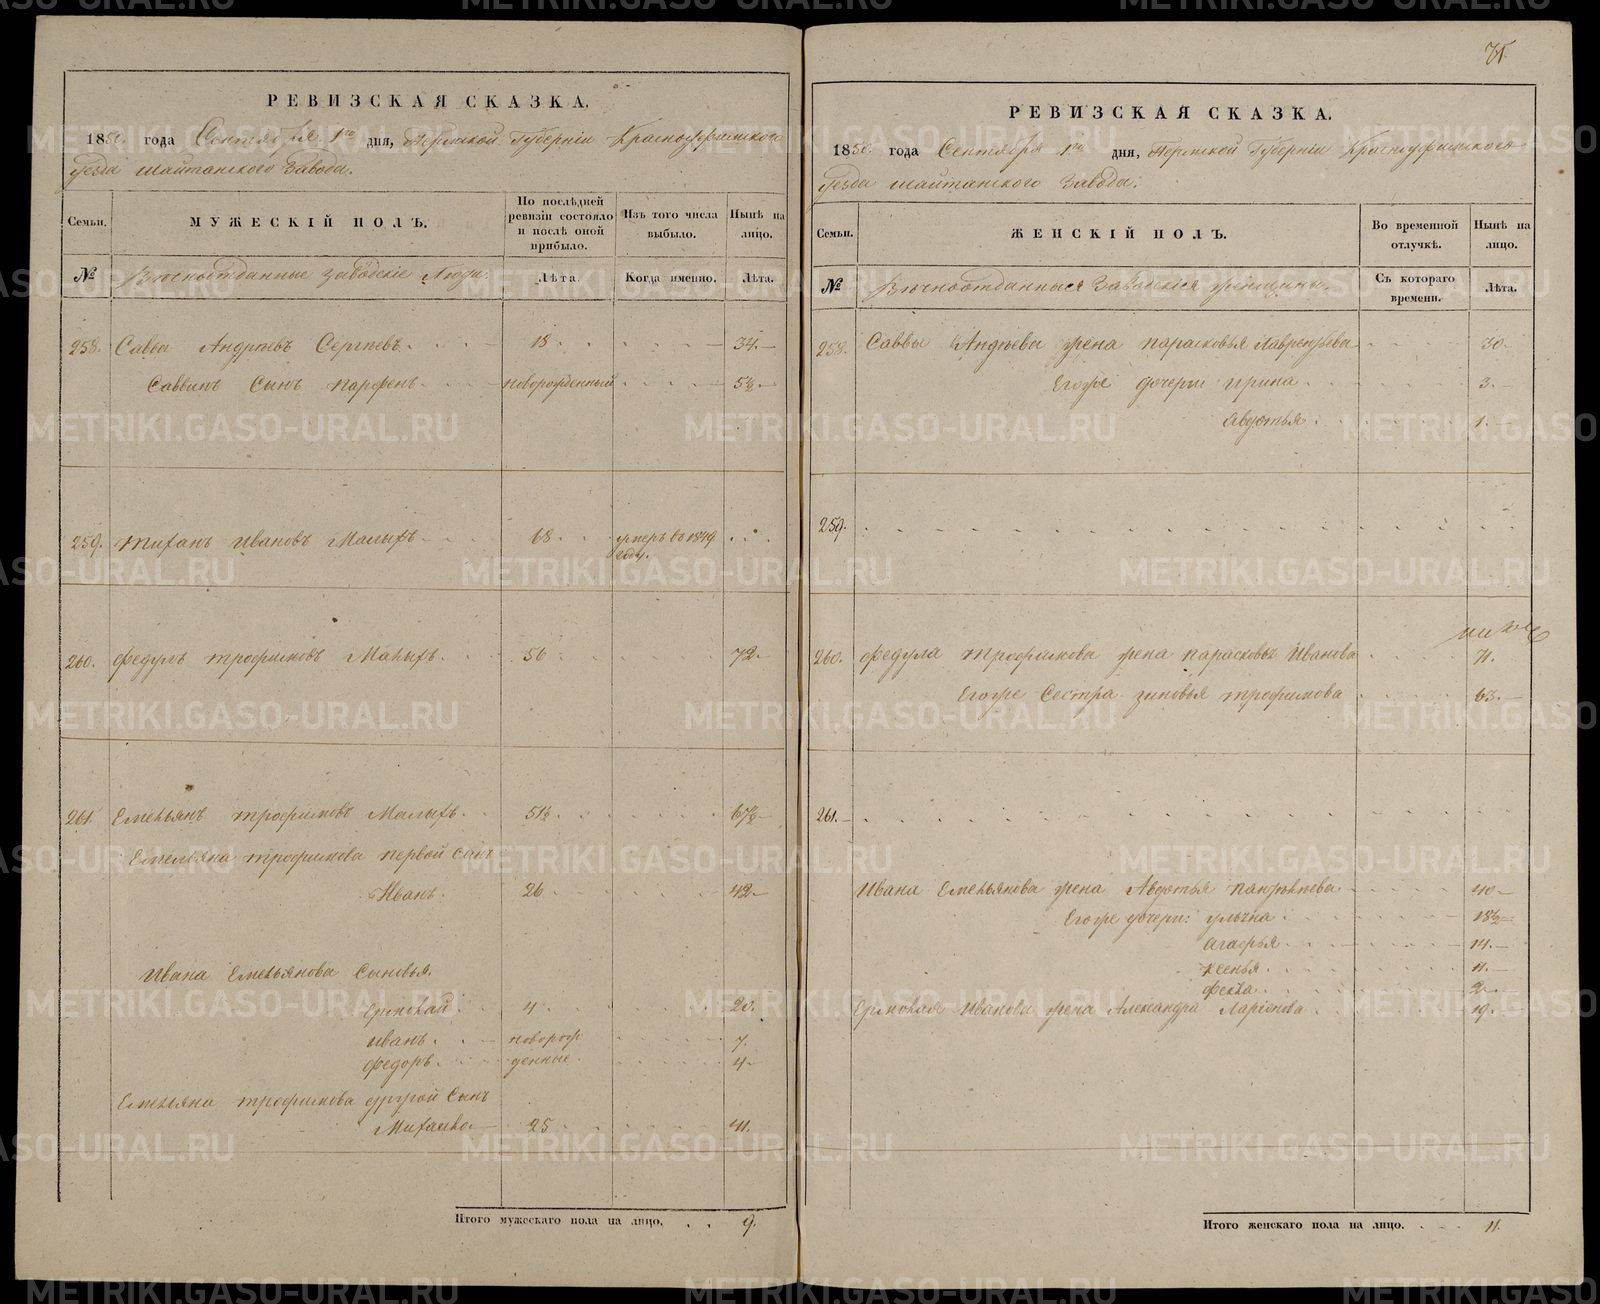 71.
РЕВИЗСКАЯ СКАЗКА.
1850 года Сентября 1го дня, Пермской Губерніи Красноуфимского
Уезда шайтанского Завода.
Семьи.
МУЖЕСКІЙ ПОЛЪ.
По послѣдней ревизіи состояло и послѣ оной прибыло.
Изъ того числа выбыло.
Нынѣ на лицо.
№
Вѣчноотданные Заводскіе Люди.
Лѣта.
Когда именно.
Лѣта.
258. Савва Андреевъ Сергѣевъ 18 34.
Саввинъ Сынъ парфенъ новорожденный 5½
259. Тиханъ Ивановъ Малыхъ 68 умеръ въ 1849
году.
260. Федулъ трофимовъ Малыхъ 56 72
261. Емельянъ трофимовъ Малыхъ 51½ 67½
Емельяна трофимова первой Сынъ
Иванъ 26 42
Ивана Емельянова Сыновья
Ермолай 4 20.
иванъ новорож 7.
федоръ денные 4
Емельяна трофимова другой Сынъ
Михайло 25 41.
Итого мужескаго пола на лицо. 9.
РЕВИЗСКАЯ СКАЗКА.
1850 года Сентября 1го дня, Пермской Губерніи Красноуфимского
Уезда шайтанского Завода.
Семьи.
ЖЕНСКІЙ ПОЛЪ.
Во временной отлучкѣ.
Нынѣ на лицо.
№
Вѣчноотданныя Заводскія женщины.
Съ котораго времени.
Лѣта.
258. Саввы Андреева жена парасковья Лаврентьева 30
Егоже дочери ирина 3.
Авдотья 1.
259.
260. Федула трофимова жена парасковья Иванова 71.
Егоже Сестра зиновья трофимова 63.
261.
Ивана Емельянова жена Авдотья панфилева 40
Егоже дочери: ульяна 18½
агафья 14
ксенья 11.
фекла 2
Ермолая Иванова жена Александра Ларіонова 19.
Итого женскаго пола на лицо. 11.